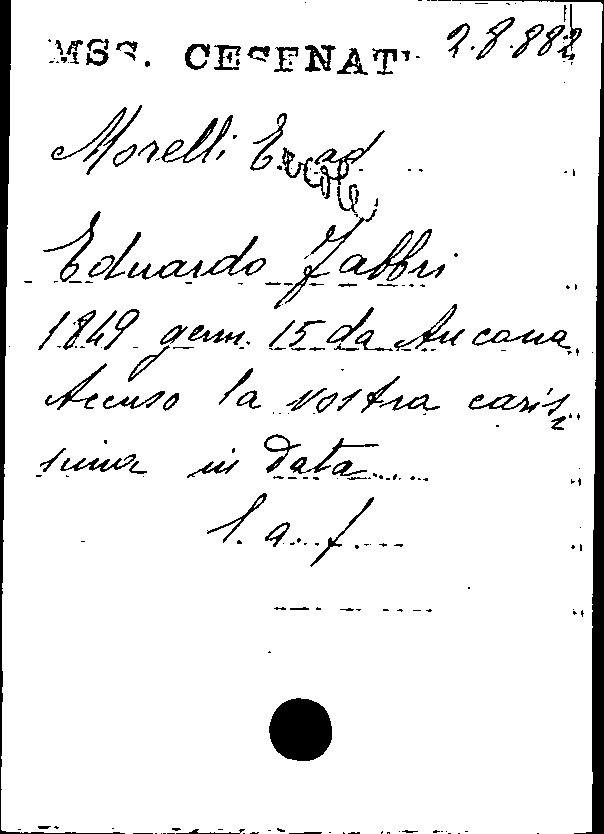 MSS. CESENATI 2.8.882
Morelli Ercole ad
Eduardo Fabbri
1849 genn. 15 da Ancona
Accuso la vostra caris=
sima in data
l. a. f.